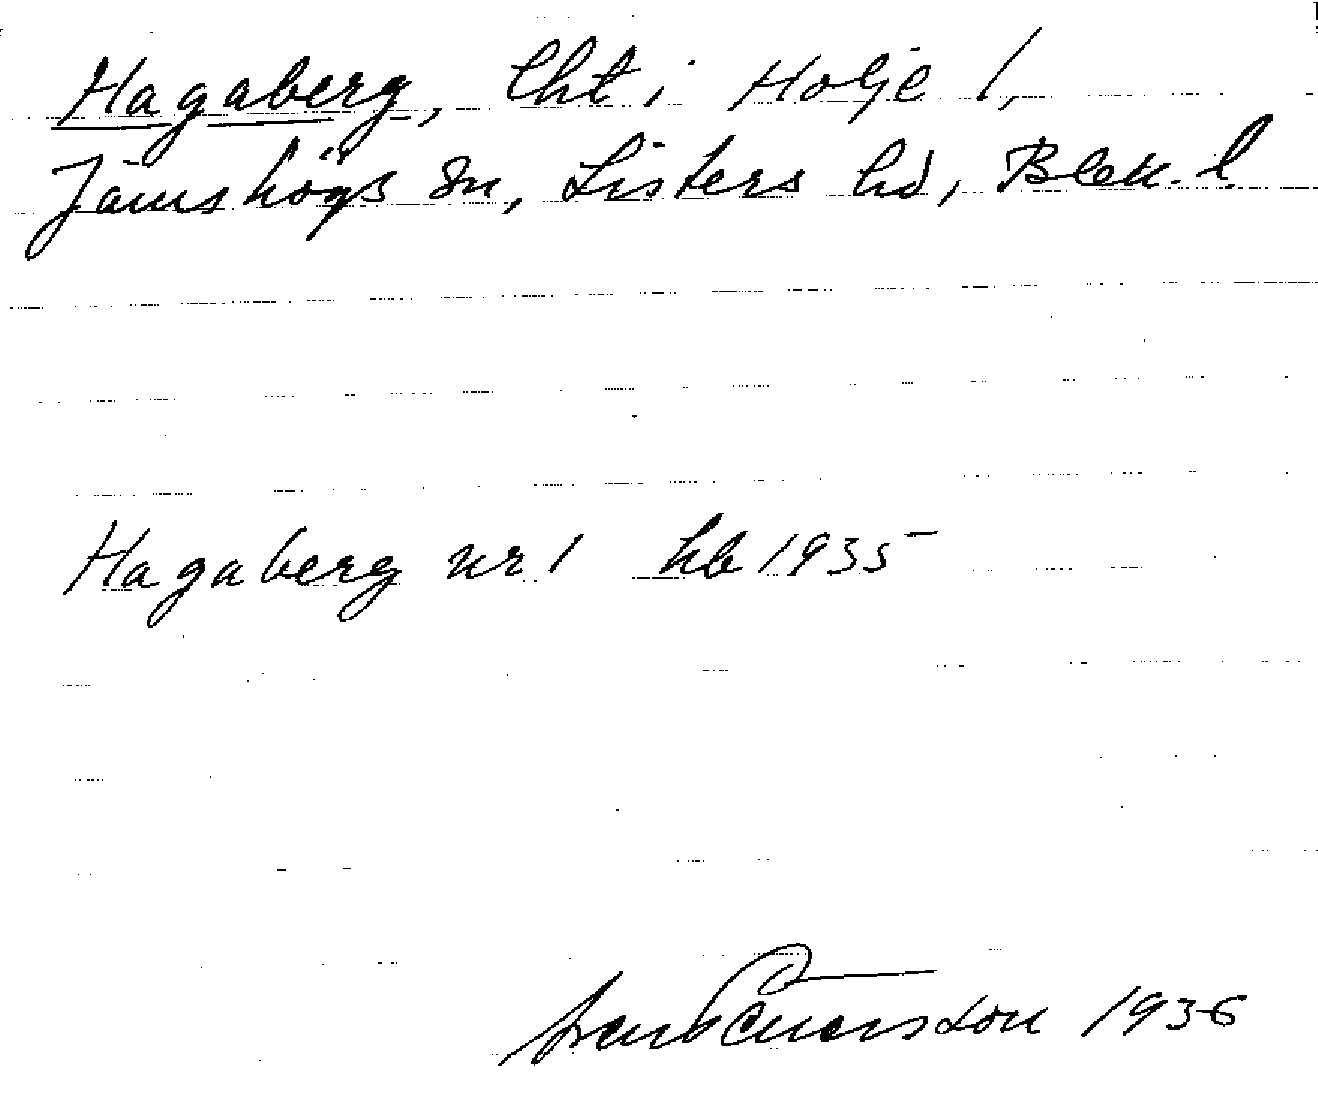 Hagaberg, lht i Holje 1,
Jämshögs sn, Listers hd, Blek. l.
Hagaberg nr 1 hb 1935
1936